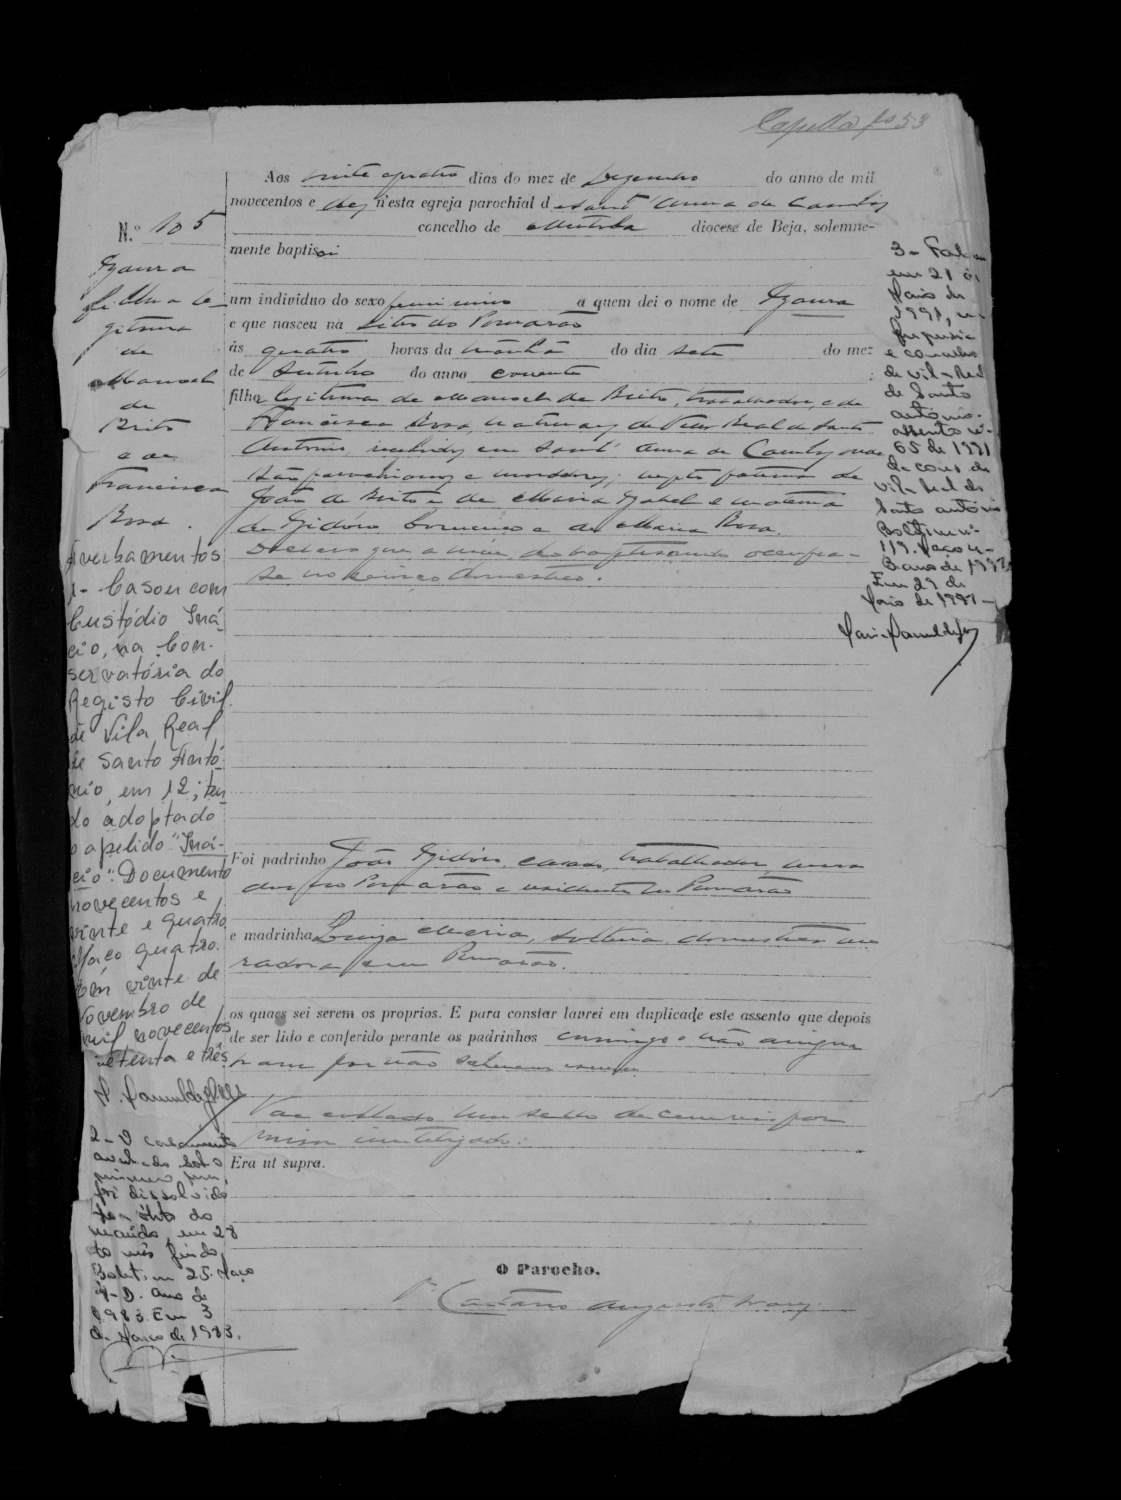 Capella fs 53
Aos vinte e quatro dias do mez de Dezembro do anno de mil
novecentos e dez n'esta egreja parochial de Sant'Anna de Cambas
concelho de Mertola diocese de Beja, solemne-
mente baptisei
um individuo do sexo feminino a quem dei o nome de Izaura
e que nasceu no sitio do Pomarão
ás quatro horas da manhã do dia sete do mez
de Outubro do anno corrente
filha legitima de Manoel de Brito, trabalhador, e de
Francisca Rosa, naturaes de Villa Real de Santo
Antonio, recebidos em Sant'Anna de Cambas onde
são parochianos e moradores; neta paterna de
João de Brito e de Maria Izabel e materna
de Izidoro Lourenço e de Maria Rosa.
Declaro que a mãe do baptisando occupa-
se no serviço domestico.
Foi padrinho João Izidoro, casado, trabalhador, mora
dor no Pomarão e residente em Pomarão
e madrinha Luiza Maria, solteira, domestica mo
radora em Pomarão.
os quaes sei serem os proprios. E para constar lavrei em duplicade este assento que depois
de ser lido e conferido perante os padrinhos commigo não assigna
ram por não saberem escrever
Vae collado um sello de cem reis por
mim inutilizado.
Era ut supra.
O Parocho.
P.e Caetano Augusto
N.º 105
Izaura
filha le
gitima
de
Manoel
de
Brito
e de
Francisca
Rosa.
Averbamentos
1- Casou com
Custódio Iná-
cio, na Con-
servatória do
Registo Civil
de Vila Real
de Santo Antó-
nio, em 12; ten
do adoptado
o apelido "Iná-
cio". Documento
novecentos e
vinte e quatro
Maço quatro.
Em vinte de
Novembro de
mil novecentos
setenta e três
2- O casamento
averbado sob o
primeiro
foi dissolvido
por óbito do
marido, em 28
do mês findo
Boletim 25. Maço
4-D. ano de
1983. Em 3
de Março de 1983.
3- Faleceu
em 21 de
Maio de
1991, na
freguesia
e concelho
de Vila Real
de Santo
António.
Assento nº
65 de 1991
da cons. de
Vila Real de
Santo António
Boletim nº
119. Maço nº
3 ano de 1991
Em 29 de
Maio de 1991-